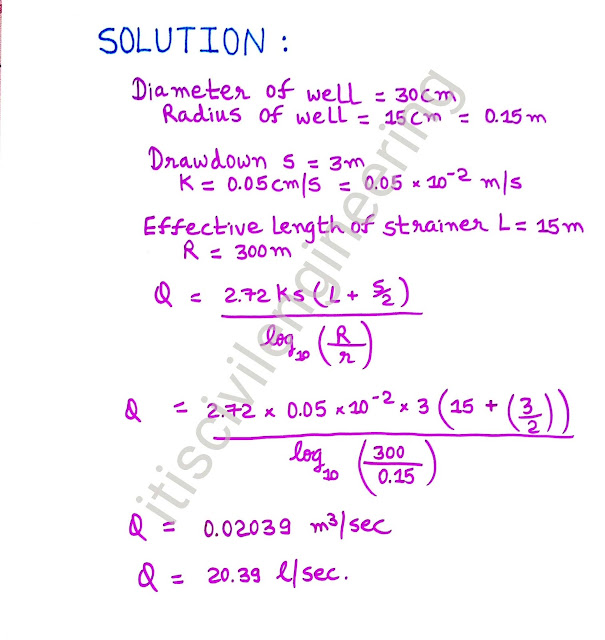 SOLUTION :
Diameter of well = 30cm
Radius of well = 15cm = 0.15m
Drawdown S = 3m
K = 0.05cm/s = 0.05 × 10⁻² m/s
Effective length of strainer L = 15m
R = 300m
Q = 2.72 Ks (L + S/2)
log₁₀ (R/r)
Q = 2.72 × 0.05 × 10⁻² × 3 (15 + (3/2))
log₁₀ (300/0.15)
Q = 0.02039 m³/sec
Q = 20.39 l/sec.
itiscivilengineering